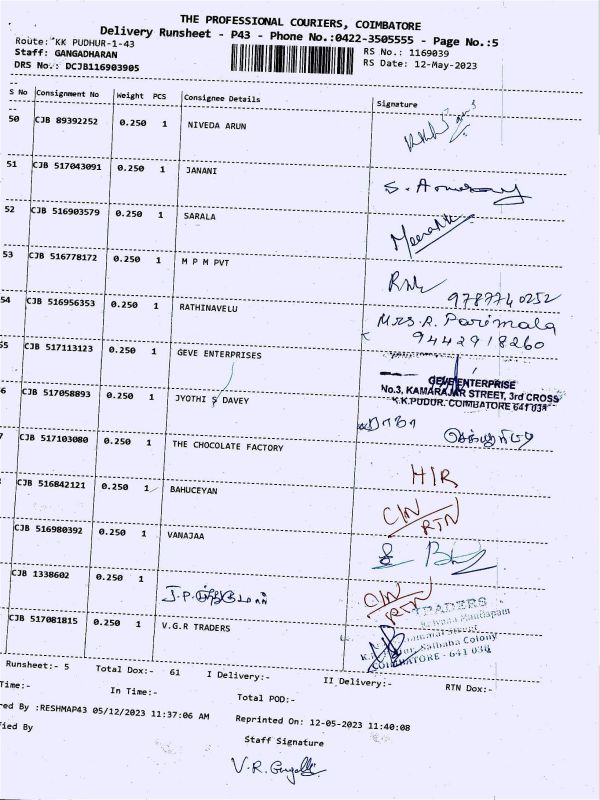 THE PROFESSIONAL COURIERS, COIMBATORE
Delivery Runsheet - P43 - Phone No.:0422-3505555 - Page No.:5
Route: KK PUDHUR-1-43
Staff: GANGADHARAN
RS No.: 1169039
DRS No.: DCJB116903905
RS Date: 12-May-2023
S No Consignment No Weight PCS Consignee Details Signature
50 CJB 89392252 0.250 1 NIVEDA ARUN
51 CJB 517043091 0.250 1 JANANI
52 CJB 516903579 0.250 1 SARALA
53 CJB 516778172 0.250 1 M P M PVT
9787740252
54 CJB 516956353 0.250 1 RATHINAVELU Mrs. R. Parimala
9442918260
55 CJB 517113123 0.250 1 GEVE ENTERPRISES
GEVE ENTERPRISE
No.3, KAMARAJAR STREET, 3rd CROSS
K.K.PUDUR. COIMBATORE 641 038
6 CJB 517058893 0.250 1 JYOTHI S DAVEY
7 CJB 517103080 0.250 1 THE CHOCOLATE FACTORY
H/R
CJB 516842121 0.250 1 BAHUCEYAN C/N
RTN
CJB 516980392 0.250 1 VANAJAA
CJB 1338602 0.250 1 C/N
RTN
CJB 517081815 0.250 1 V.G.R TRADERS
TRADERS
Saibaba Colony
COIMBATORE - 641 038
Runsheet:- 5 Total Dox:- 61 I Delivery:- II Delivery:- RTN Dox:-
Time:- In Time:- Total POD:-
red By :RESHMAP43 05/12/2023 11:37:06 AM Reprinted On: 12-05-2023 11:40:08
fied By
Staff Signature